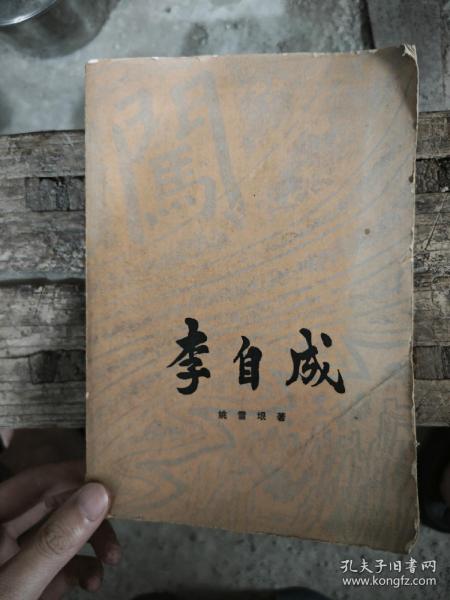 闯
李自成
姚雪垠著
孔夫子旧书网
www.kongfz.com